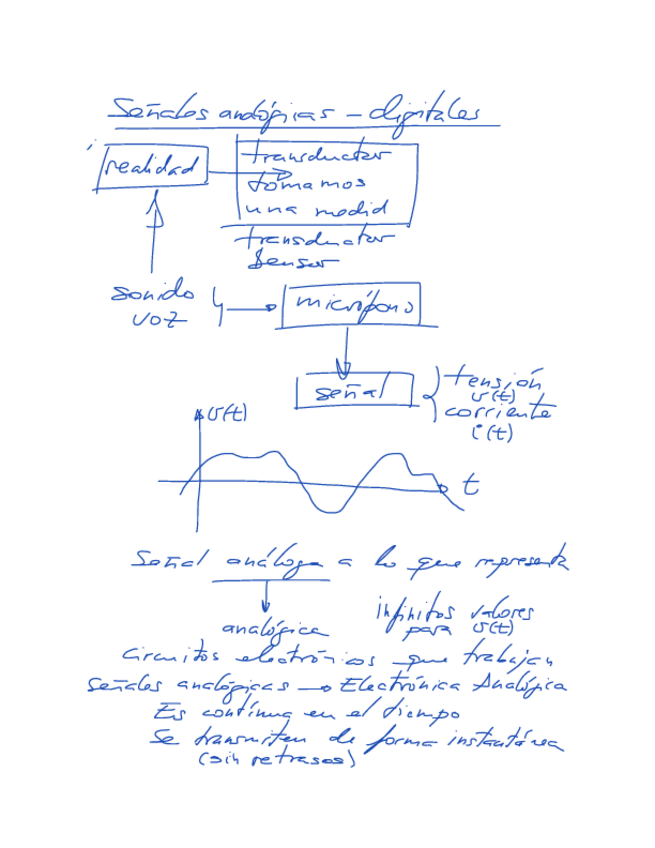 Señales analógicas - digitales
realidad
transductor
tomamos
una medid
transductor
Sensor
sonido
voz
micrófono
señal
tensión
v(t)
corriente
i(t)
v(t)
t
Señal análoga a lo que representa
analógica
infinitos valores
para v(t)
Circuitos electrónicos que trabajan
señales analógicas → Electrónica Analógica
Es continua en el tiempo
Se transmiten de forma instantánea
(sin retrasos)